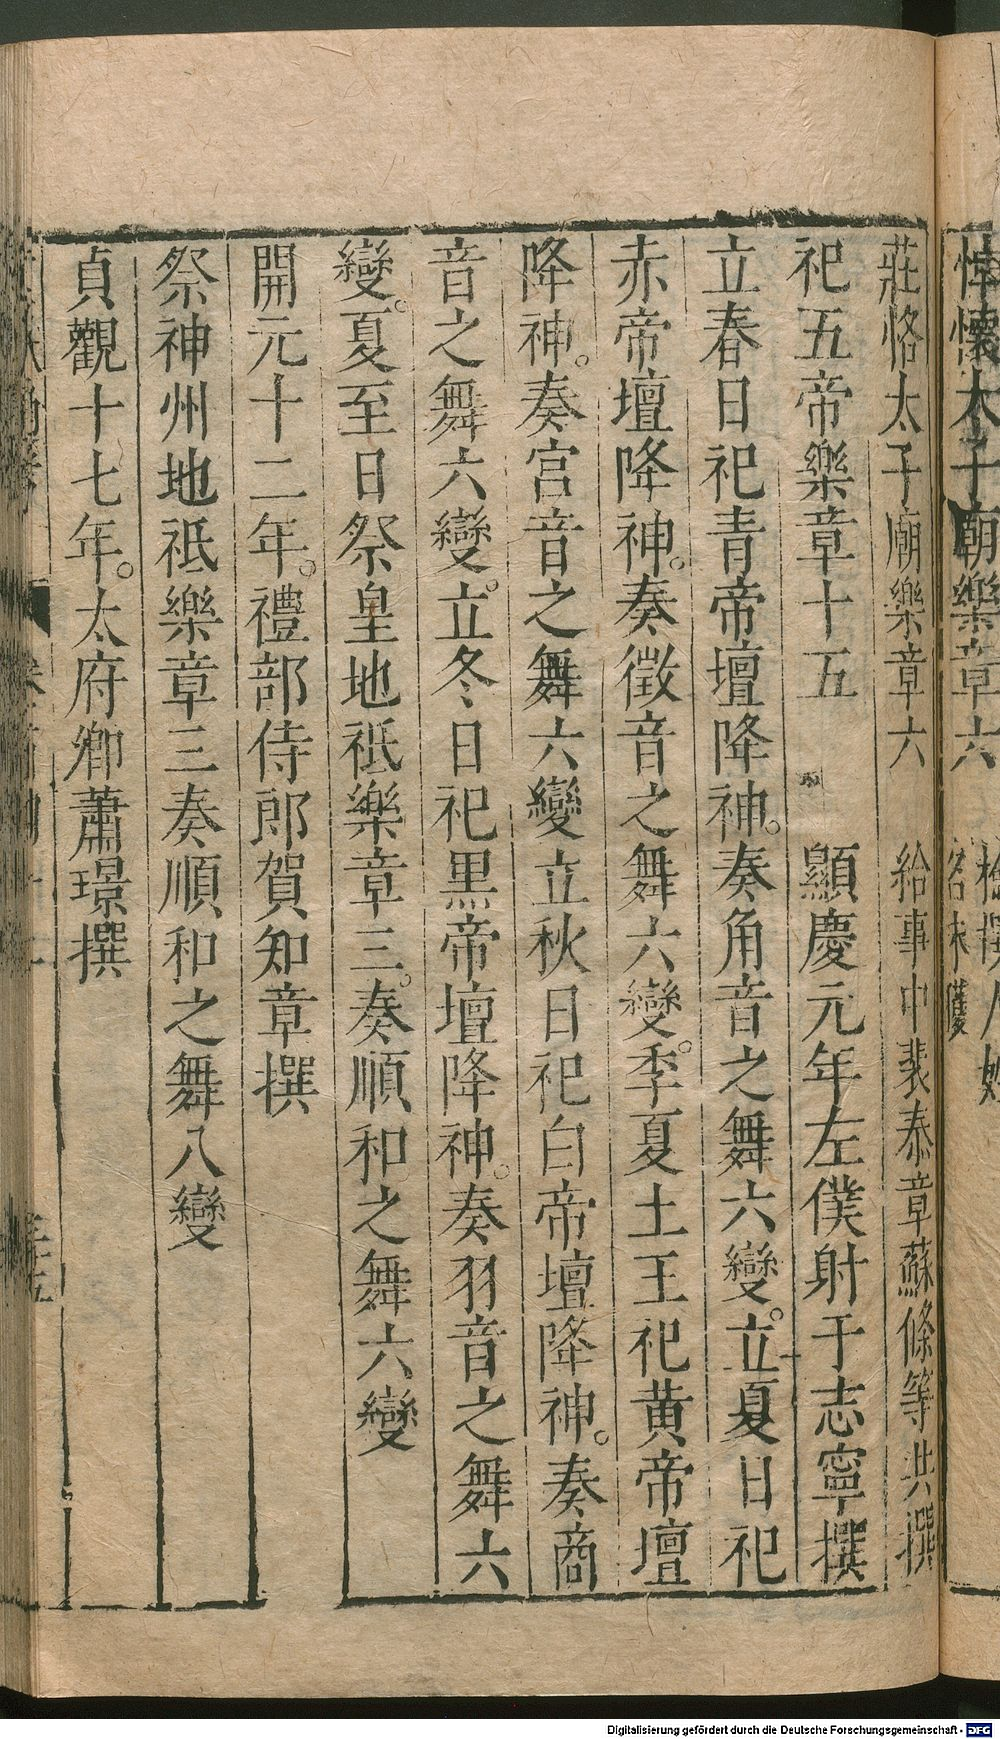 悼懷太子廟樂章六
名未獲
莊恪太子廟樂章六 給事中裴泰章蘇絛等共撰
祀五帝樂章十五 顯慶元年左僕射于志寧撰
立春日祀青帝壇降神。奏角音之舞六變。立夏日祀
赤帝壇降神。奏徵音之舞六變。季夏土王祀黃帝壇
降神。奏宮音之舞六變立秋日祀白帝壇降神。奏商
音之舞六變。立冬日祀黑帝壇降神。奏羽音之舞六
變。夏至日祭皇地祇樂章三。奏順和之舞六變
開元十二年。禮部侍郎賀知章撰
祭神州地祇樂章三奏順和之舞八變
貞觀十七年。太府卿蕭璟撰
Digitalisierung gefördert durch die Deutsche Forschungsgemeinschaft - DFG